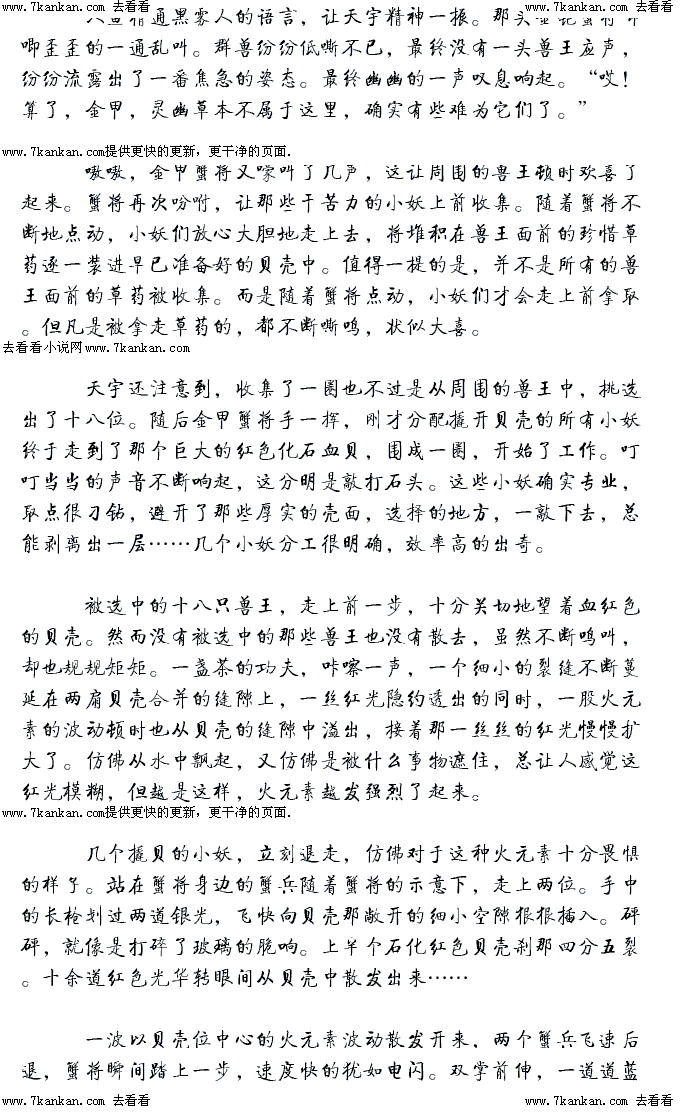 www.7kankan.com 去看看 www.7kankan.com 去看看 www.7kankan.com 去看看
精通黑雾人的语言，让天宇精神一振。那头
唧歪歪的一通乱叫。群兽纷纷低嘶不已，最终没有一头兽王应声，
纷纷流露出了一番焦急的姿态。最终幽幽的一声叹息响起。“哎！
算了，金甲，灵幽草本不属于这里，确实有些难为它们了。”
www.7kankan.com提供更快的更新，更干净的页面.
嗷嗷，金甲蟹将又嚎叫了几声，这让周围的兽王顿时欢喜了
起来。蟹将再次吩咐，让那些干苦力的小妖上前收集。随着蟹将不
断地点动，小妖们放心大胆地走上去，将堆积在兽王面前的珍惜草
药逐一装进早已准备好的贝壳中。值得一提的是，并不是所有的兽
王面前的草药被收集。而是随着蟹将点动，小妖们才会走上前拿取
。但凡是被拿走草药的，都不断嘶鸣，状似大喜。
去看看小说网www.7kankan.com
天宇还注意到，收集了一圈也不过是从周围的兽王中，挑选
出了十八位。随后金甲蟹将手一挥，刚才分配撬开贝壳的所有小妖
终于走到了那个巨大的红色化石血贝，围成一圈，开始了工作。叮
叮当当的声音不断响起，这分明是敲打石头。这些小妖确实专业，
取点很刁钻，避开了那些厚实的壳面，选择的地方，一敲下去，总
能剥离出一层……几个小妖分工很明确，效率高的出奇。
被选中的十八只兽王，走上前一步，十分关切地望着血红色
的贝壳。然而没有被选中的那些兽王也没有散去，虽然不断鸣叫，
却也规规矩矩。一盏茶的功夫，咔嚓一声，一个细小的裂缝不断蔓
延在两扇贝壳合并的缝隙上，一丝红光隐约透出的同时，一股火元
素的波动顿时也从贝壳的缝隙中溢出，接着那一丝丝的红光慢慢扩
大了。仿佛从水中飘起，又仿佛是被什么事物遮住，总让人感觉这
红光模糊，但越是这样，火元素越发强烈了起来。
www.7kankan.com提供更快的更新，更干净的页面.
几个撬贝的小妖，立刻退走，仿佛对于这种火元素十分畏惧
的样子。站在蟹将身边的蟹兵随着蟹将的示意下，走上两位。手中
的长枪划过两道银光，飞快向贝壳那敞开的细小空隙狠狠插入。砰
砰，就像是打碎了玻璃的脆响。上半个石化红色贝壳刹那四分五裂
。十余道红色光华转眼间从贝壳中散发出来……
一波以贝壳位中心的火元素波动散发开来，两个蟹兵飞速后
退，蟹将瞬间踏上一步，速度快的犹如电闪。双掌前伸，一道道蓝
www.7kankan.com 去看看 www.7kankan.com 去看看 www.7kankan.com 去看看